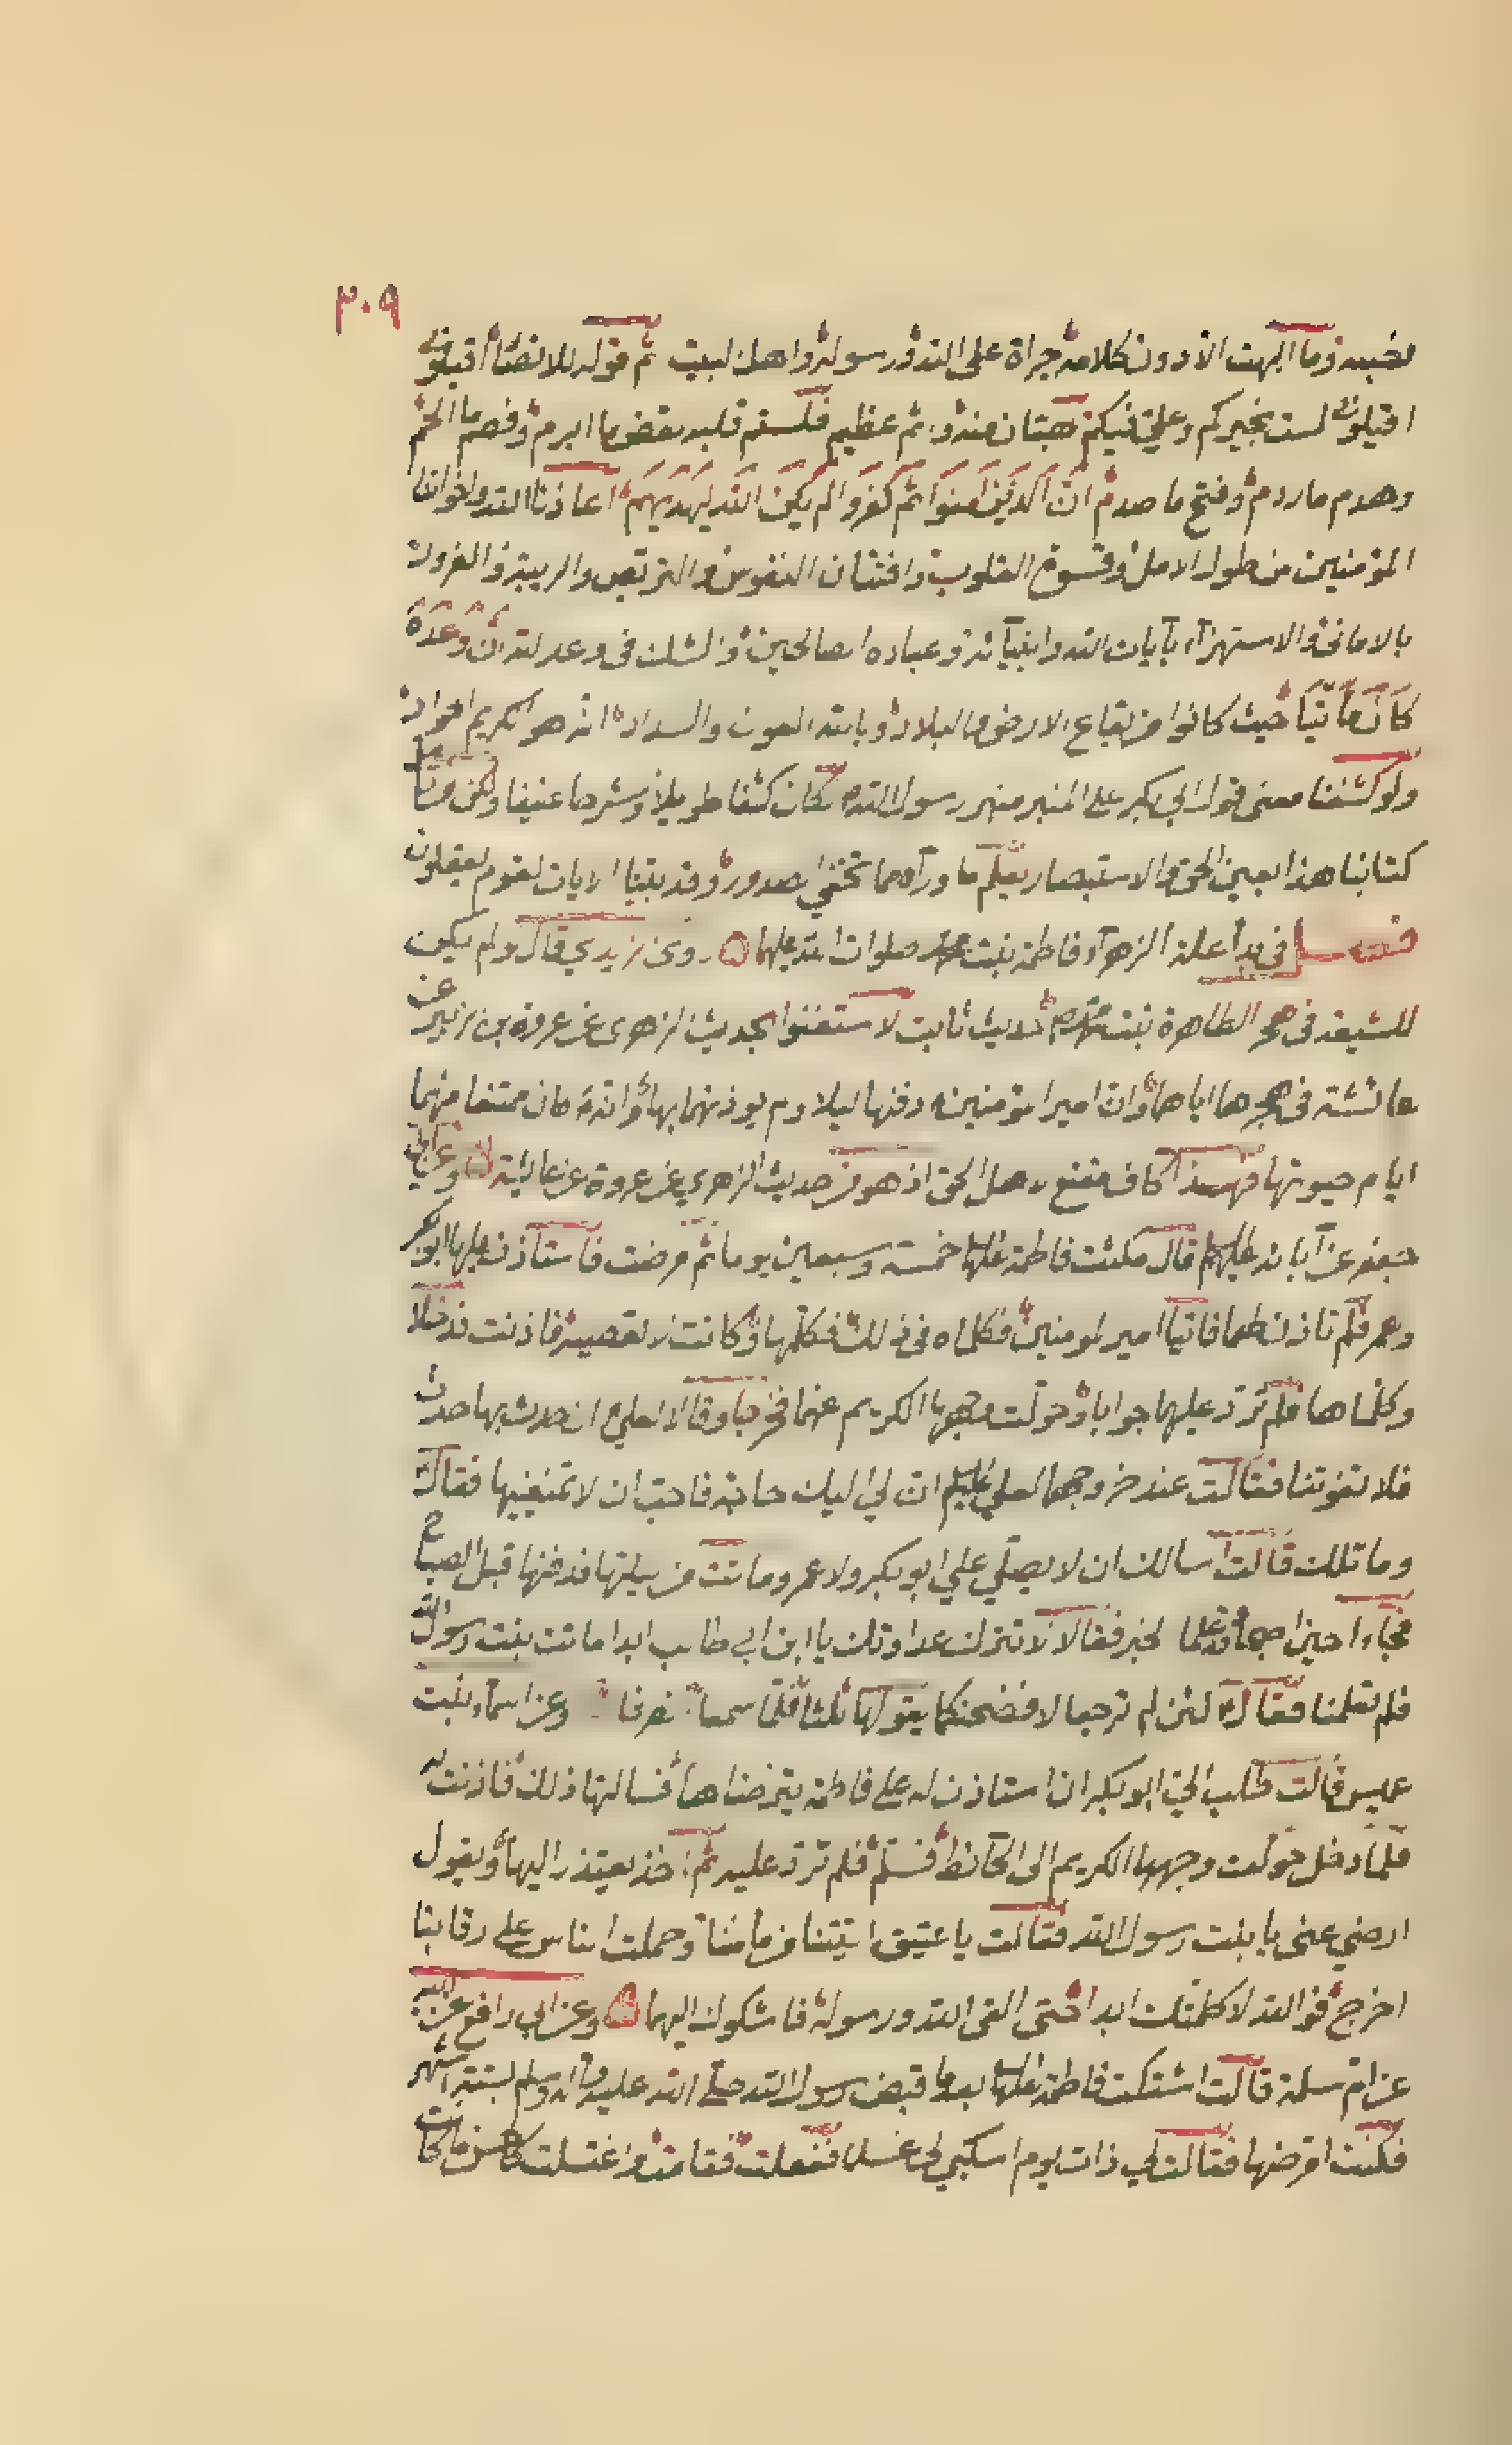 ٣٠٩
لخبيه وما البهت الا دون كلامه جراة على الله ورسوله واهل البيت ثم قوله للانصار اقيلوني
اقيلوني لست بخيركم وعلي فيكم بهتان منه واثم عظيم فلستم قلبه بنقض ما ابرم وفصم ما الحم
وهدم ما ردم وفتح ما صدم ان الذين امنوا ثم كفروا لم يكن الله ليهديهم اعاذنا الله واخواننا
المؤمنين من طول الامل وقسوة القلوب وافتتان النفوس والتربص والريبة والغرور
بالاماني والاستهزاء بآيات الله وانبيآئه وعباده الصالحين والشك في وعد الله ان وعده
كان مأتيا حيث كانوا من بقاع الارض والبلاد وبالله العون والسداد انه هو الكريم الجواد
ولو كشفنا معنى قول ابي بكر على المنبر منبر رسول الله لكان كشفا طويلا وشرحا عنيفا ولكن من تأمل
كتابنا هذا بعين الحق والاستبصار يعلم ما ورآه مما تخفي الصدور وقد بينا الايات لقوم يعقلون
فصل في بدأ علة الزهرآء فاطمة بنت محمد صلوات الله عليها روى زيدي قال ولم يكن
للشيعة في هجر الطاهرة بنت محمد حديث ثابت لاستغنوا بحديث الزهرى عن عروة بن زبير عن
عائشة في هجرها اياهما وان امير المؤمنين دفنها ليلا ولم يوذنهما بها وانه كان ممتنعا منهما
ايام حيوتها فهذا كاف مقنع لاهل الحق اذ هو من حديث الزهري عن عروة عن عائشة وعن ابي
جعفر عن آبائه عليهم قال مكثت فاطمة عليها خمسة وسبعين يوما ثم مرضت فاستأذن عليها ابو بكر
وعمر فلم تاذن لهما فاتيا امير المومنين فكلماه في ذلك فكلمها وكانت لا تعصيه فاذنت فدخلا
وكلماها فلم ترد عليهما جوابا وحولت وجهها الكريم عنهما فخرجا وقالا لعلي ان حدث بها حدث
فلا تفوتنا فقالت عند خروجهما لعلي ان لي اليك حاجة فاحب ان لا تمنعنيها فقال
وما تلك قالت اسالك ان لا يصلي علي ابو بكر ولا عمر وماتت من ليلتها فدفنها قبل الصباح
فجاءا حين اصبحا فعلما الخبر فقالا لا تترك عداوتك يا ابن ابي طالب ابدا ماتت بنت رسول الله
فلم تعلمنا فقال لئن لم ترجعا لافضحنكما يقولها ثلثا فلما سمعا انصرفا وعن اسماء بنت
عميس قالت طلب الي ابو بكر ان استاذن له على فاطمة يترضاها فسالتها ذلك فاذنت له
فلما دخل حولت وجهها الكريم الى الحائط فسلم فلم ترد عليه ثم اخذ يعتذر اليها ويقول
ارضي عنى يا بنت رسول الله فقالت يا عتيق اتيتنا من مأمننا وحملت الناس على رقابنا
اخرج فوالله لا كلمتك ابدا حتى القى الله ورسوله فاشكوك اليهما وعن ابي رافع عن ابيه
عن ام سلمة قالت اشتكت فاطمة عليها بعد ما قبض رسول الله صلى الله عليه وآله وسلم بستة اشهر
فكنت امرضها فقالت لي ذات يوم اسكبي لي غسلا ففعلت فقامت واغتسلت كاحسن ما كانت